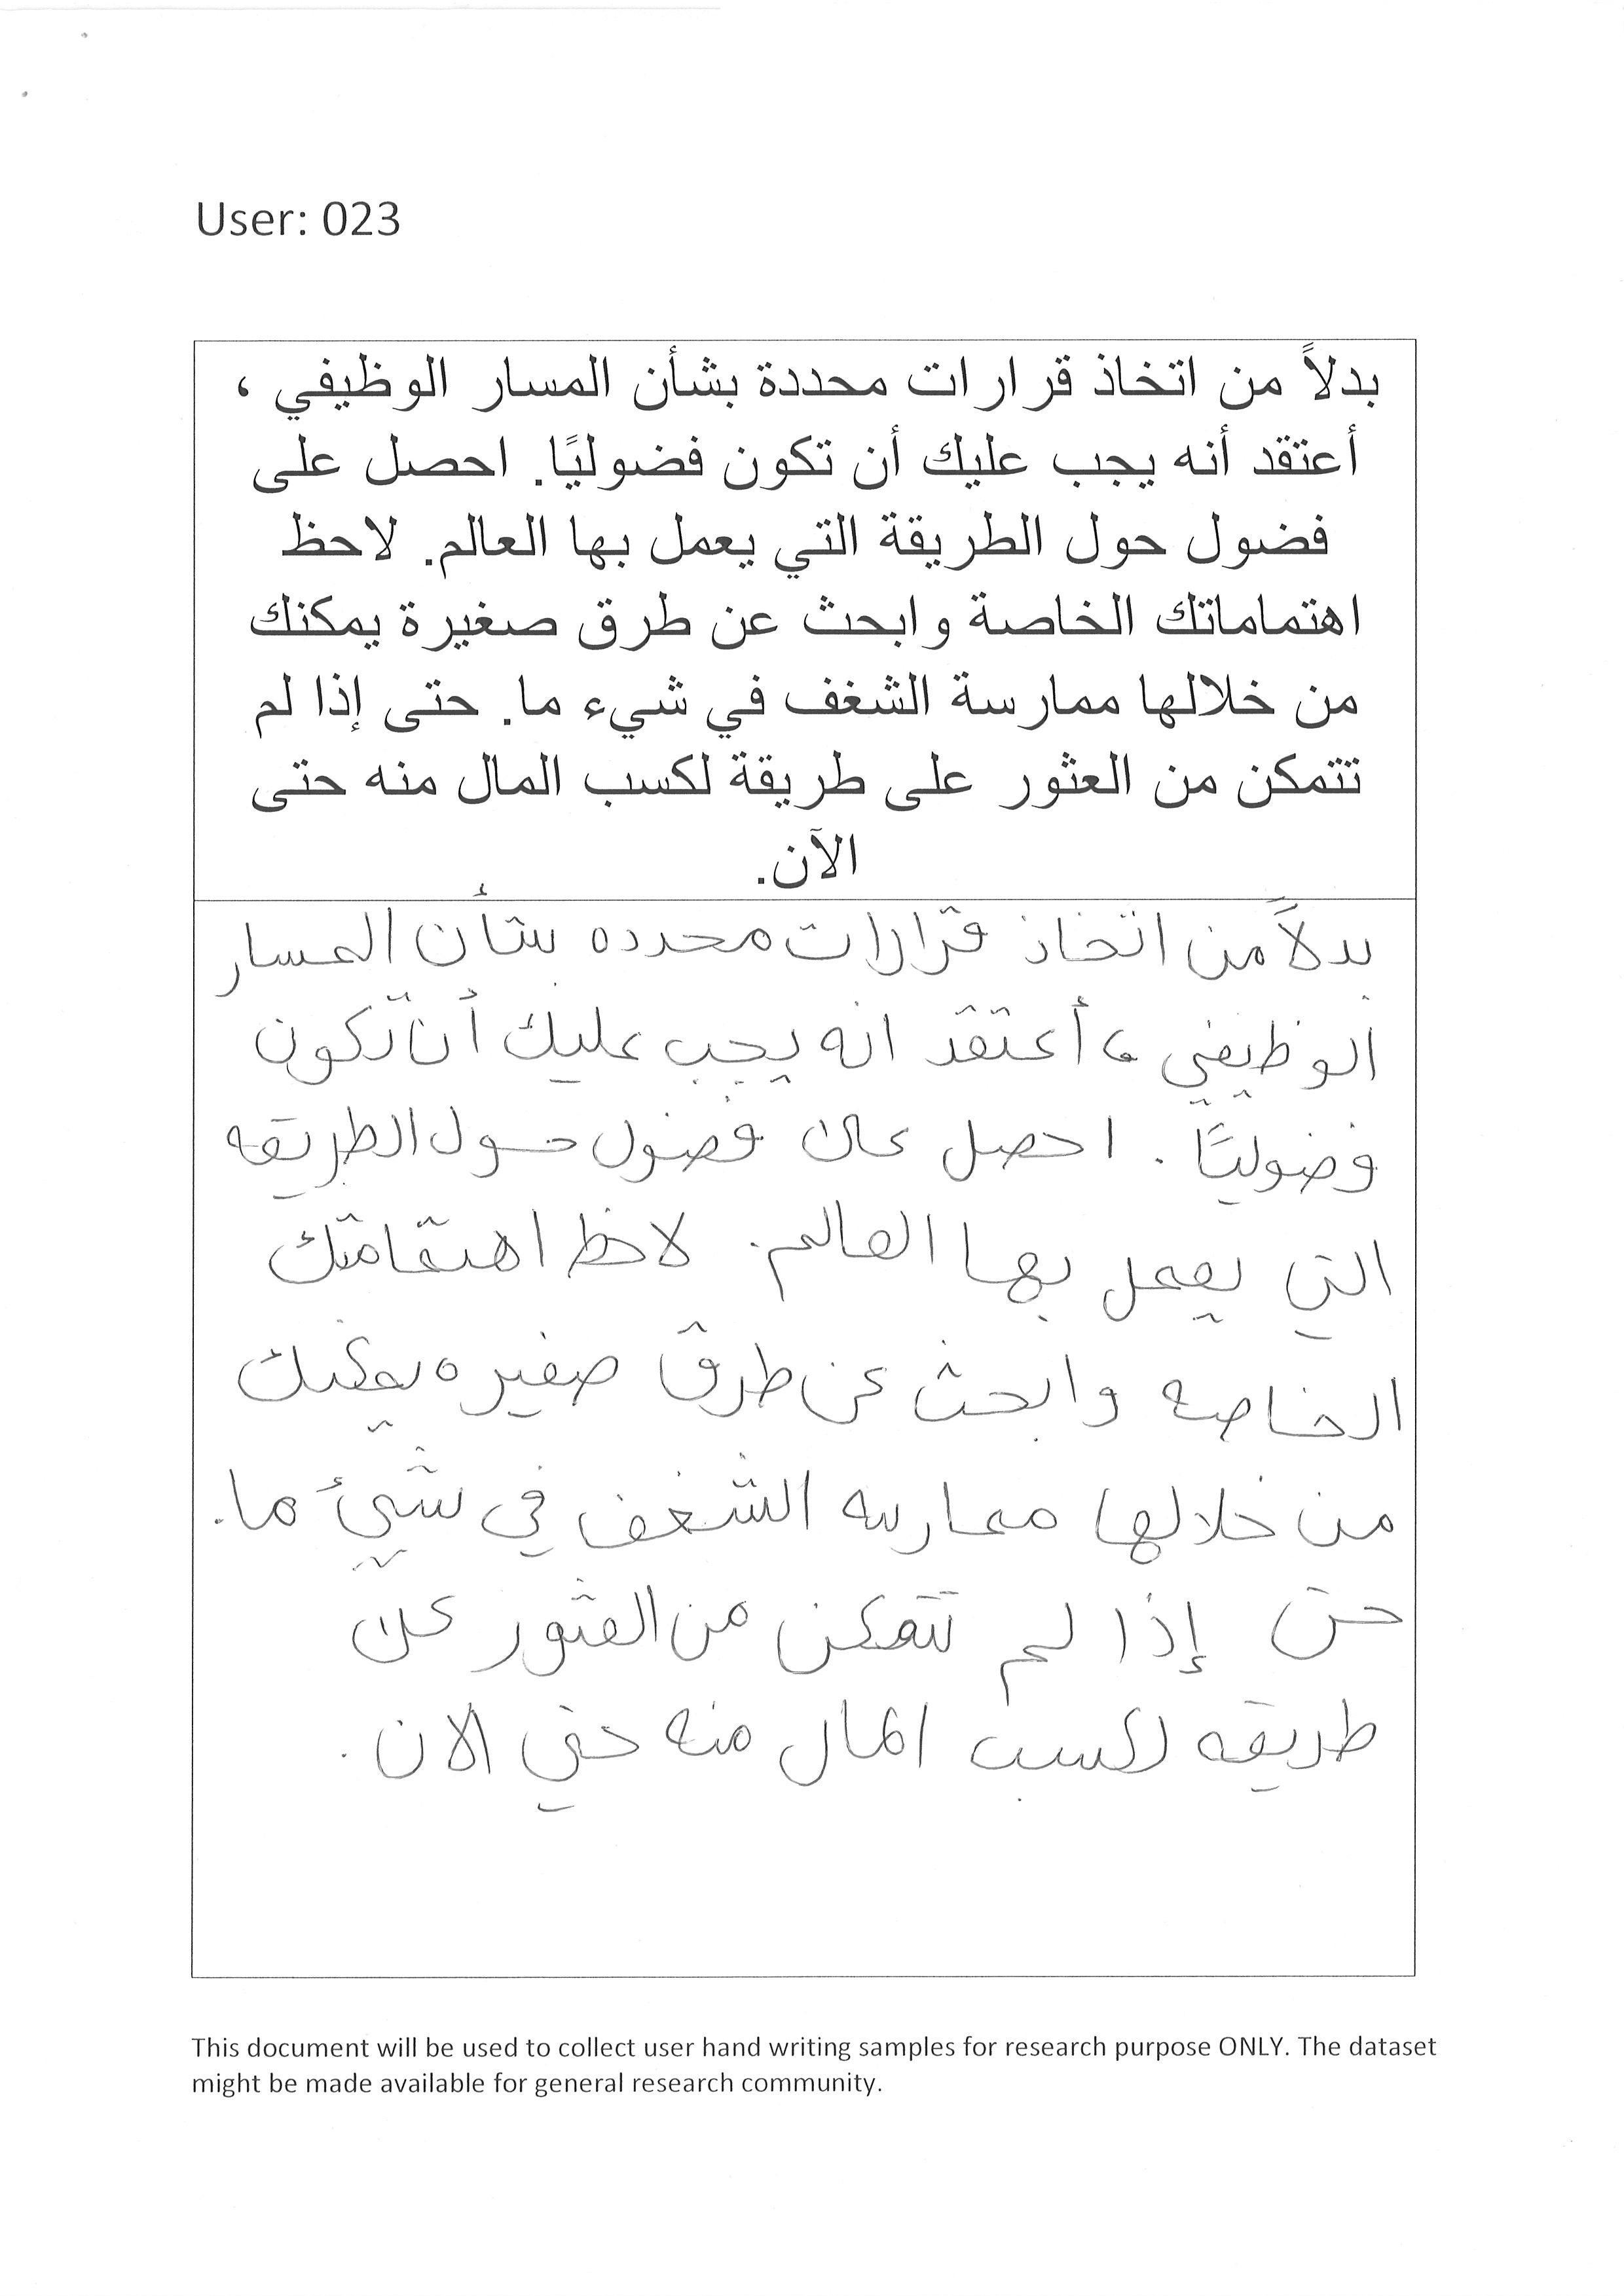 User: 023
بدلاً من اتخاذ قرارات محددة بشأن المسار الوظيفي ،
أعتقد أنه يجب عليك أن تكون فضوليًا. احصل على
فضول حول الطريقة التي يعمل بها العالم. لاحظ
اهتماماتك الخاصة وابحث عن طرق صغيرة يمكنك
من خلالها ممارسة الشغف في شيء ما. حتى إذا لم
تتمكن من العثور على طريقة لكسب المال منه حتى
الآن.
بدلاً من اتخاذ قرارات محدده بشأن المسار
الوظيفي ، أعتقد انه يجب عليك أن تكون
فضوليًا. احصل على فضول حول الطريقه
التي يعمل بها العالم. لاحظ اهتمامتك
الخاصه وابحث عن طرق صغيره يمكنك
من خلالها ممارسه الشغف في شيئ ما.
حتى إذا لم تتمكن من العثور على
طريقه لكسب المال منه حتي الان.
This document will be used to collect user hand writing samples for research purpose ONLY. The dataset
might be made available for general research community.